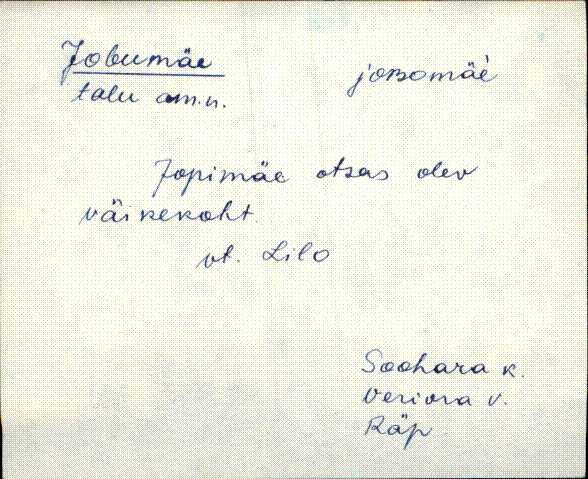 Jobumäe
joʙomäè
talu am.n.
Jopimäe otsas olev
väikekoht.
vt. Lilo
Soohara k.
Veriora v.
Räp